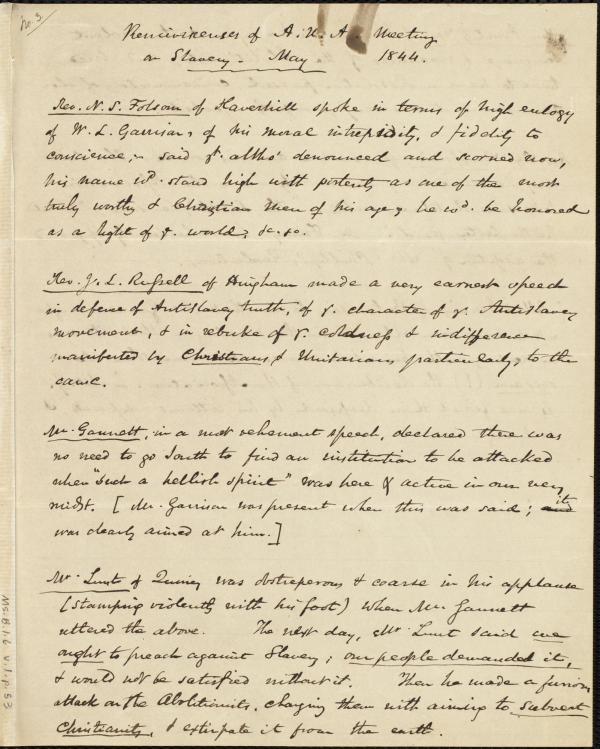 No. 3.
Reminiscenses of A. U. A. Meeting
on Slavery - May 1844.
Rev. N. S. Folsom of Haverhill spoke in terms of high eulogy
of W. L. Garrison, of his moral intrepidity, & fidelity to
conscience; - said yt. altho' denounced and scorned now,
his name wd. stand high with posterity as one of the most
truly worthy & Christian men of his age; he wd. be honored
as a light of ye. world, &c. &c.
Rev. J. L. Russell of Hingham made a very earnest speech
in defense of Antislavery truth, of ye. character of ye. Antislavery
movement, & in rebuke of ye. coldness & indifference
manifested by Christians, & Unitarians particularly, to the
cause.
Mr. Gannett, in a most vehement speech, declared there was
no need to go South to find an institution to be attacked
when "such a hellish spirit" was here & active in our very
midst. [Mr. Garrison was present when this was said; and it
was clearly aimed at him.]
Mr. Lunt of Quincy was obstreperous & coarse in his applause
(stamping violently with his foot) when Mr. Gannett
uttered the above. The next day, Mr. Lunt said we
ought to preach against Slavery; our people demanded it,
& would not be satisfied without it. Then he made a furious
attack on the Abolitionists, charging them with aiming to subvert
Christianity, & extirpate it from the earth.
Ms. B. 1.6 v. 1, p. 53